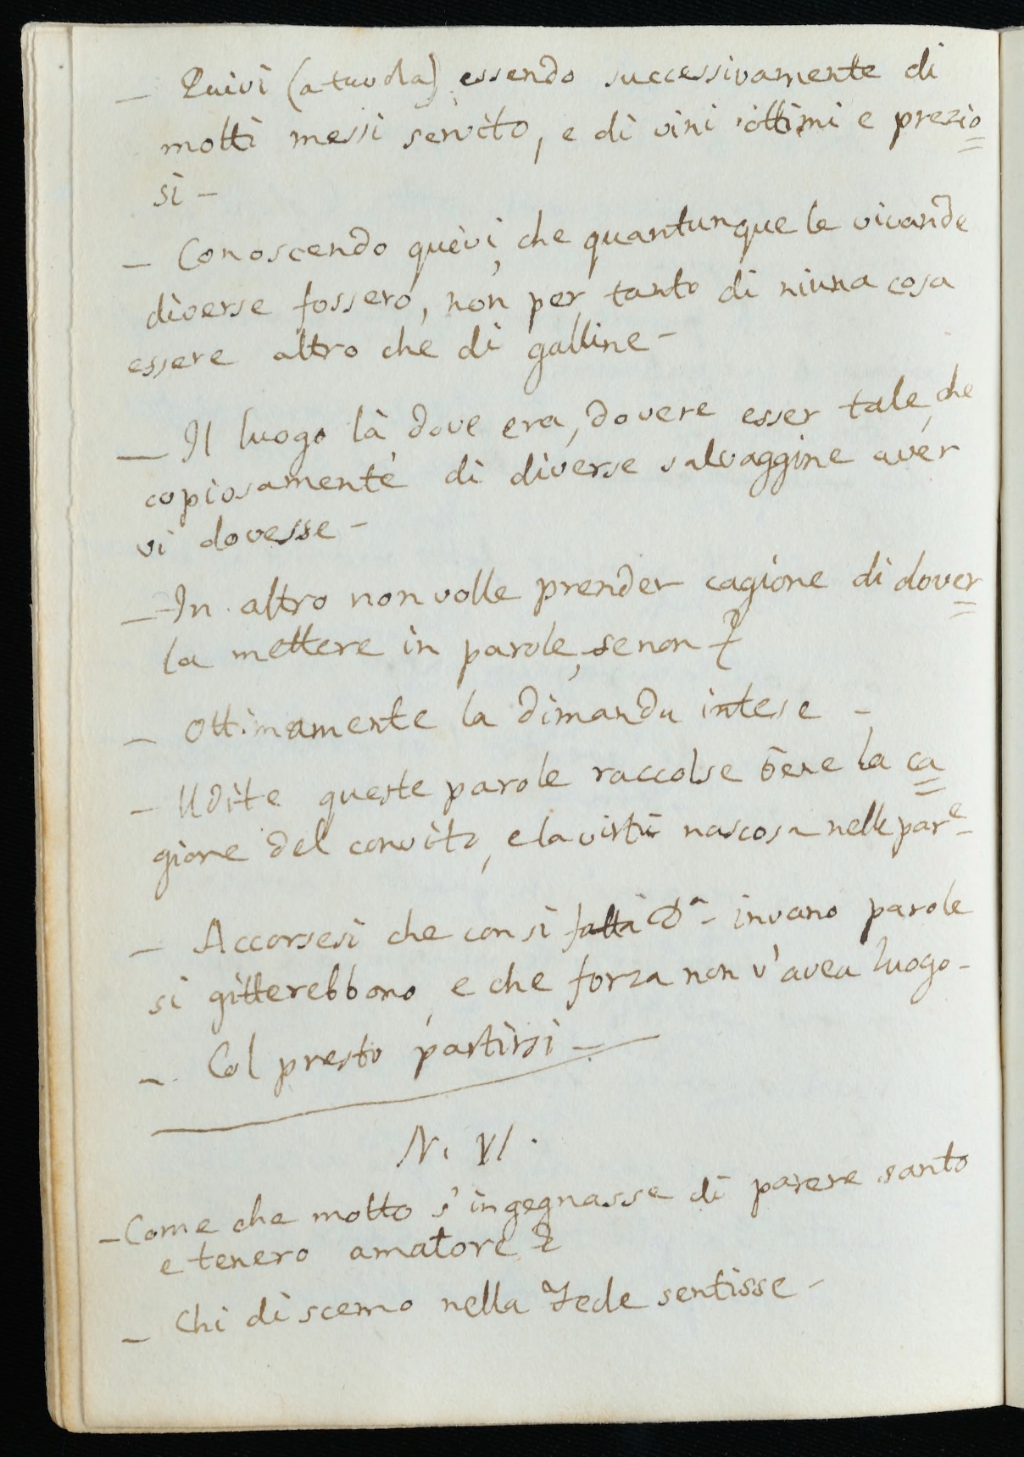 — Quivi (a tavola) essendo successivamente di
molti messi servito, e di vini ottimi e prezio=
si —
— Conoscendo quivi, che quantunque le vivande
diverse fossero, non per tanto di niuna cosa
essere altro che di galline —
— Il luogo là dove era, dovere esser tale, che
copiosamente di diverse salvaggine aver
vi dovesse —
— In altro non volle prender cagione di dover=
la mettere in parole, se non &
— Ottimamente la dimanda intese —
— Udite queste parole raccolse bene la ca=
gione del convito, e la virtù nascosa nelle par^e —
— Accorsesi che con sì fatta D^a — invano parole
si gitterebbono, e che forza non v'avea luogo —
— Col presto partirsi —
N. VI.
— Come che molto s'ingegnasse di parere santo
e tenero amatore &
— Chi di scemo nella Fede sentisse —